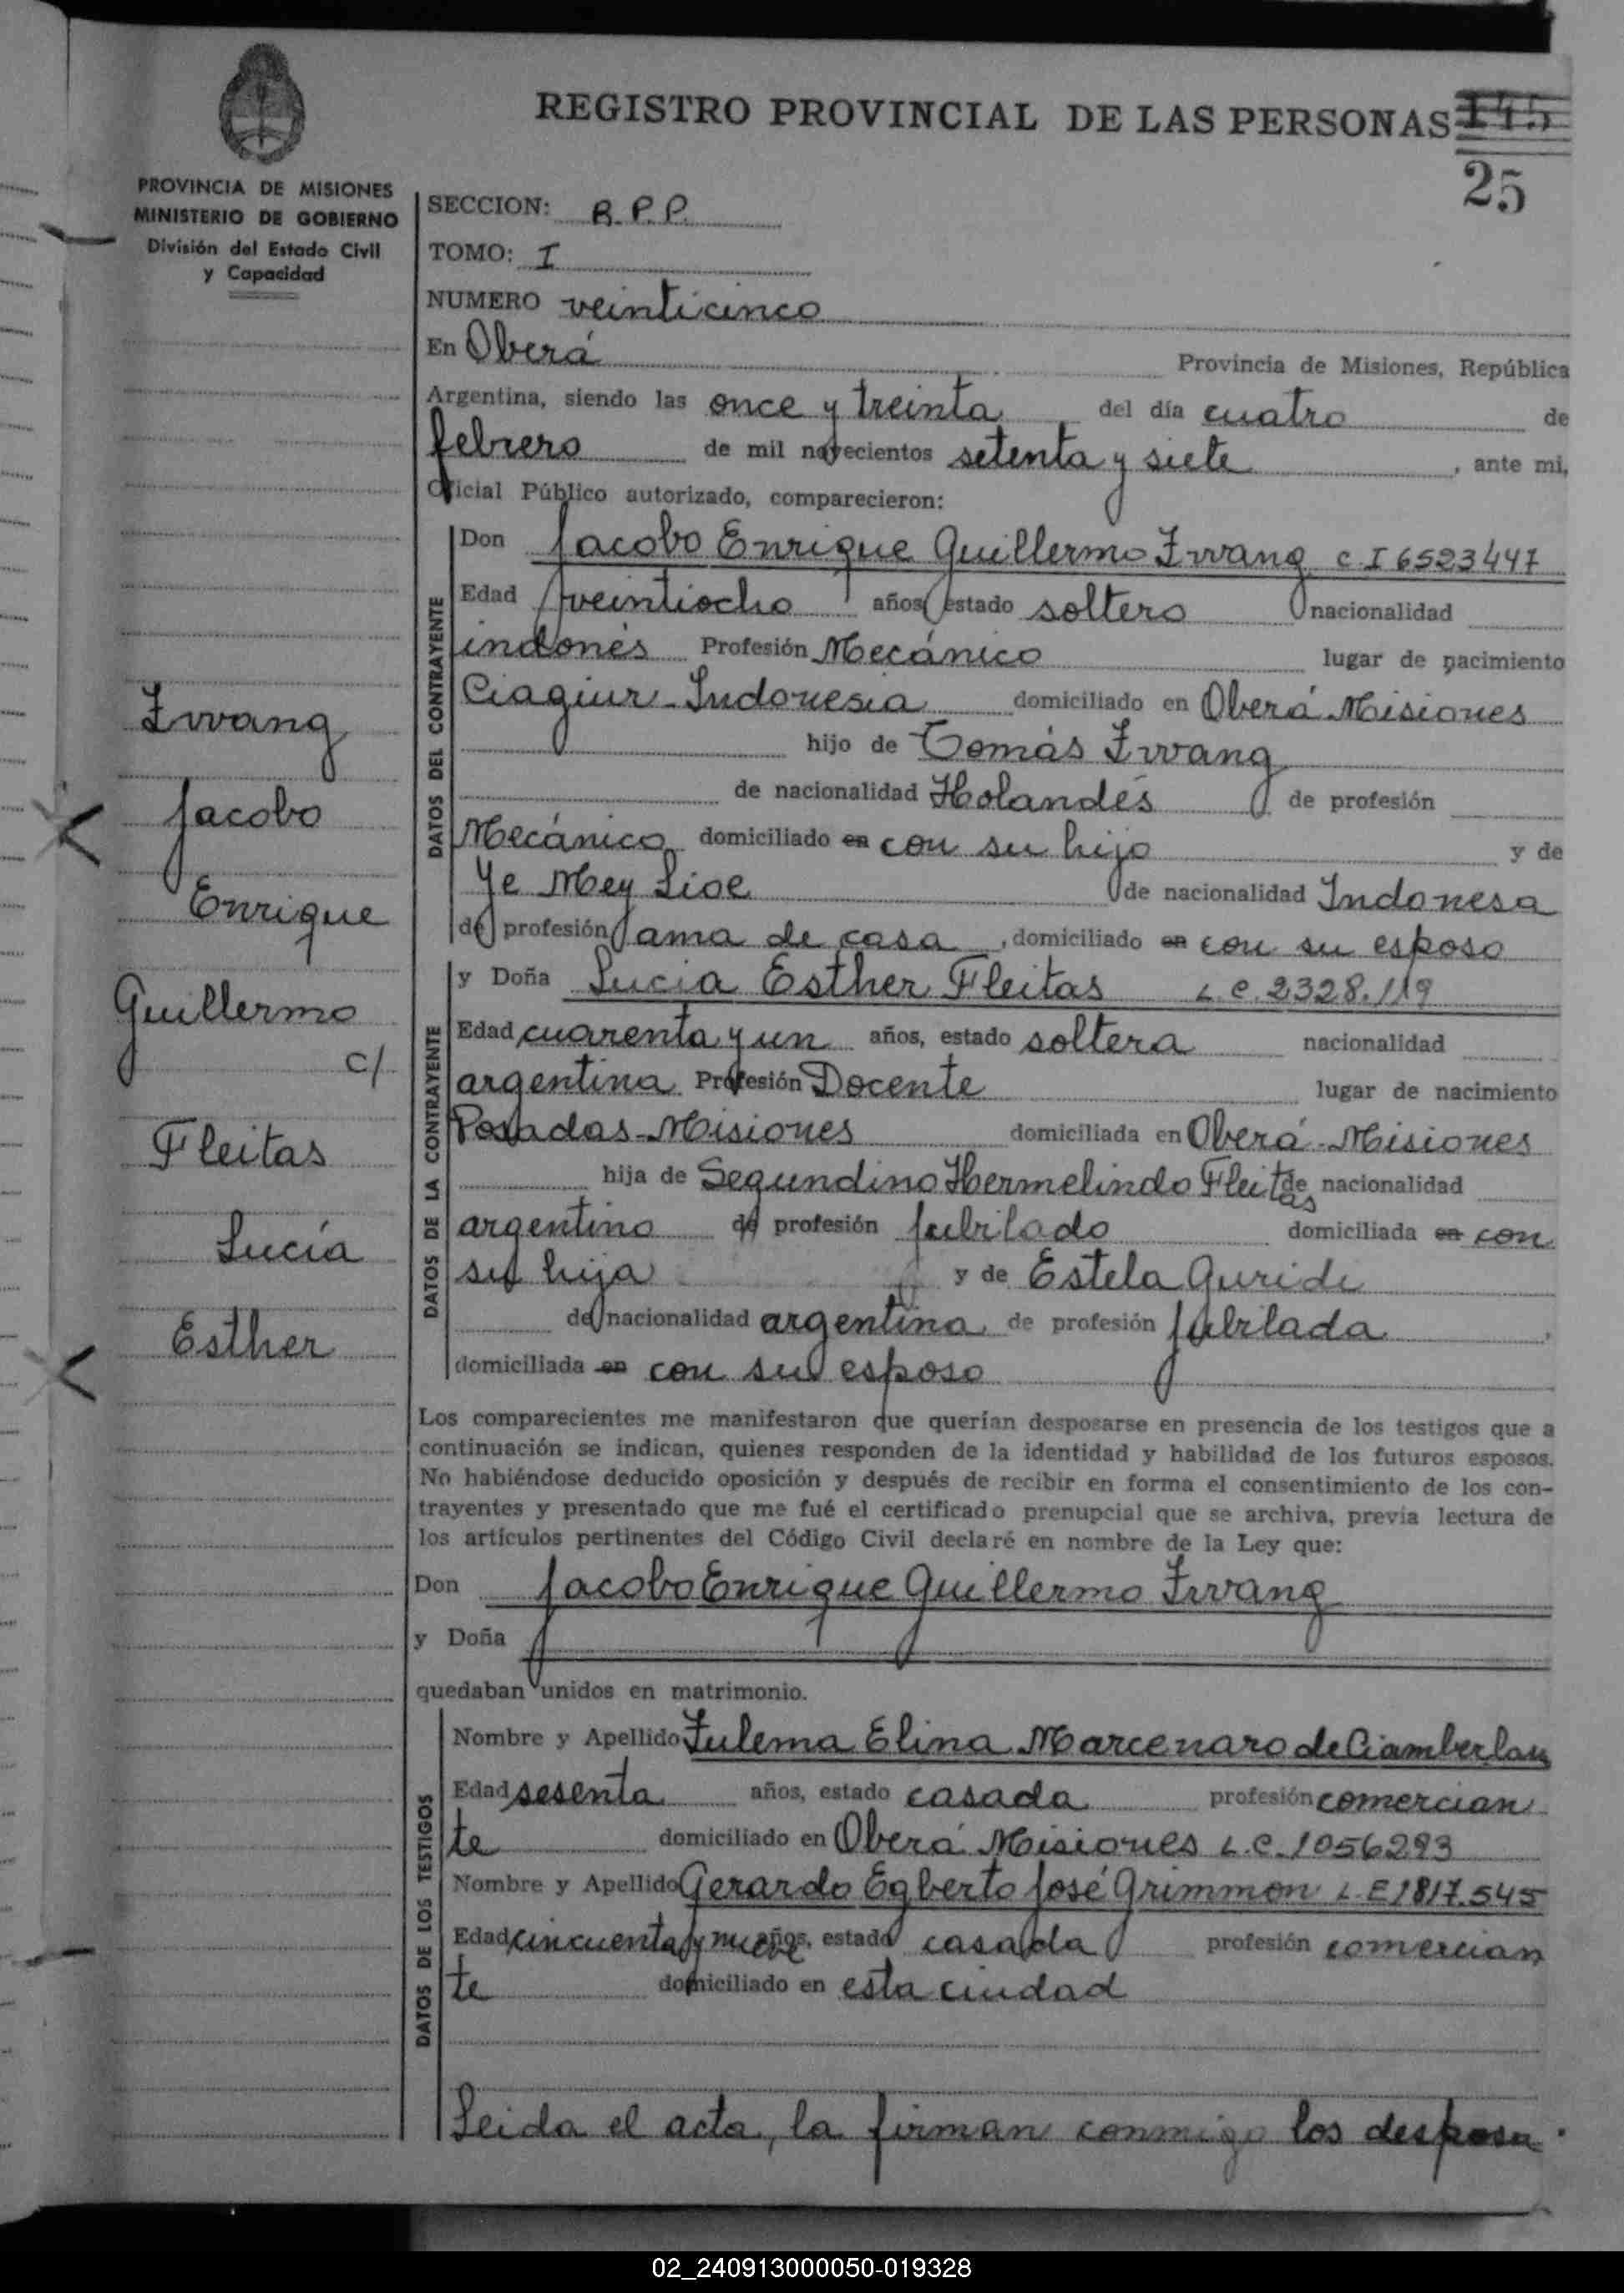 REGISTRO PROVINCIAL DE LAS PERSONAS 145
25
PROVINCIA DE MISIONES
MINISTERIO DE GOBIERNO
División del Estado Civil
y Capacidad
SECCION: R.P.P.
TOMO: I
NUMERO veinticinco
En Oberá Provincia de Misiones, República
Argentina, siendo las once y treinta del día cuatro de
febrero de mil novecientos setenta y siete, ante mi,
Oficial Público autorizado, comparecieron:
DATOS DEL CONTRAYENTE
Don Jacobo Enrique Guillermo Zwang C.I 6523447
Edad veintiocho años estado soltero nacionalidad
indonés Profesión Mecánico lugar de nacimiento
Ciagiur-Indonesia domiciliado en Oberá-Misiones
hijo de Tomás Zwang
de nacionalidad Holandés de profesión
Mecánico domiciliado en con su hijo y de
Ye Mey Lioe de nacionalidad Indonesa
de profesión ama de casa, domiciliado en con su esposo
DATOS DE LA CONTRAYENTE
y Doña Lucia Esther Fleitas L.C. 2328.119
Edad cuarenta y un años, estado soltera nacionalidad
argentina Profesión Docente lugar de nacimiento
Posadas-Misiones domiciliada en Oberá-Misiones
hija de Segundino Hermelindo Fleitas de nacionalidad
argentino de profesión jubilado domiciliada en con
su hija y de Estela Guridi
de nacionalidad argentina de profesión jubilada
domiciliada en con su esposo
Zwang
Jacobo
Enrique
Guillermo
c/
Fleitas
Lucía
Esther
Los comparecientes me manifestaron que querían desposarse en presencia de los testigos que a
continuación se indican, quienes responden de la identidad y habilidad de los futuros esposos.
No habiéndose deducido oposición y después de recibir en forma el consentimiento de los con-
trayentes y presentado que me fué el certificado prenupcial que se archiva, previa lectura de
los artículos pertinentes del Código Civil declaré en nombre de la Ley que:
Don Jacobo Enrique Guillermo Zwang
y Doña
quedaban unidos en matrimonio.
DATOS DE LOS TESTIGOS
Nombre y Apellido Zulema Elina Marcenaro de Ciamberlan
Edad sesenta años, estado casada profesión comercian
te domiciliado en Oberá Misiones L.C. 1056293
Nombre y Apellido Gerardo Egberto José Grimmon L.E 1817.545
Edad cincuenta y nueve años, estado casado profesión comercian
te domiciliado en esta ciudad
Leida el acta, la firman conmigo los desposa
02_240913000050-019328